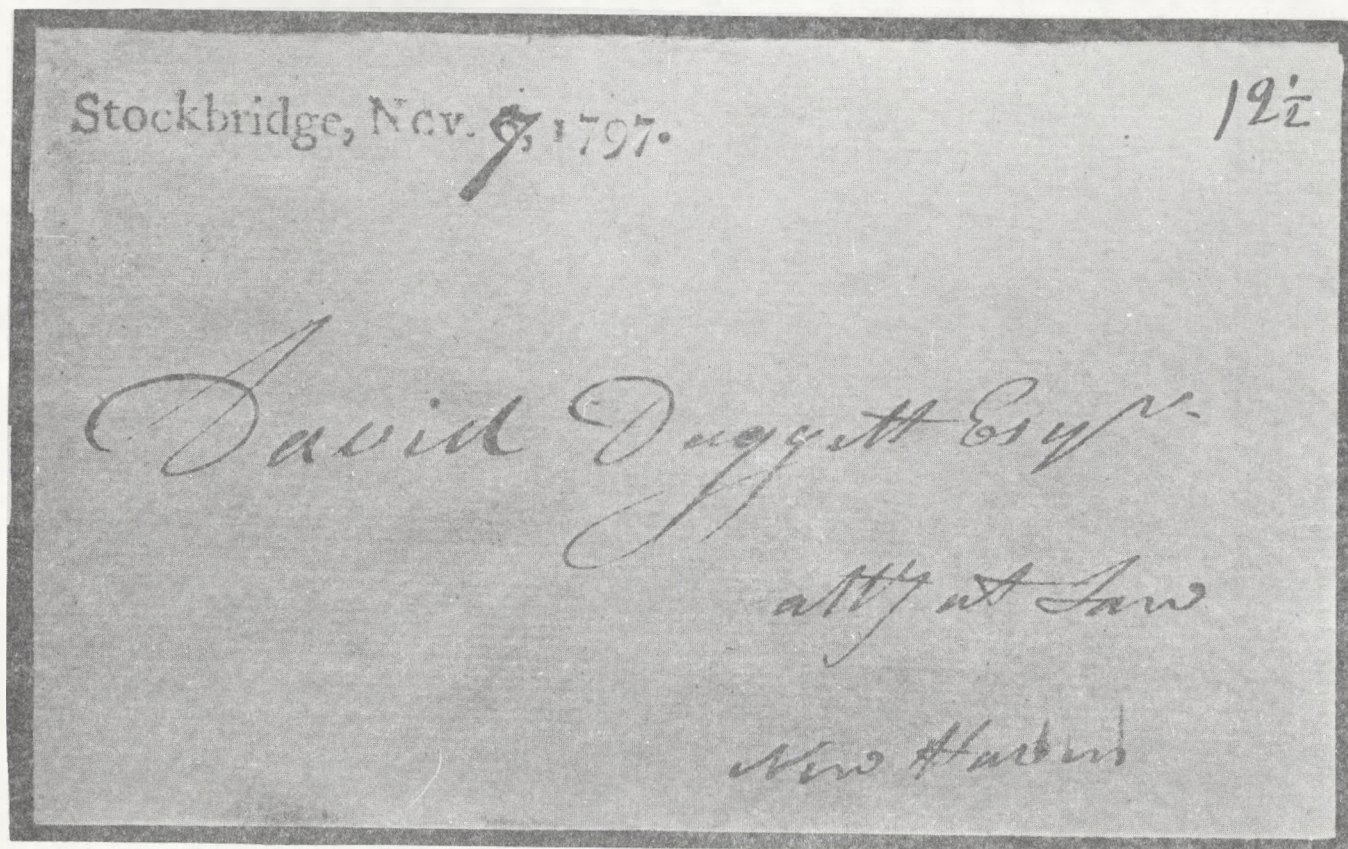 Stockbridge, Nov. 7, 1797.
12½
David Daggett Esqr.
atty at Law
New Haven